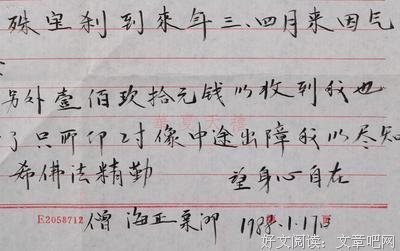 殊宝刹到来年三、四月来因气
另外壹佰玖拾元钱以收到我也
了只所印2寸像中途出障我以尽知
希佛法精勤 望身心自在
E2058712 僧 海正 198 .1.17日
好文阅读:文章吧网